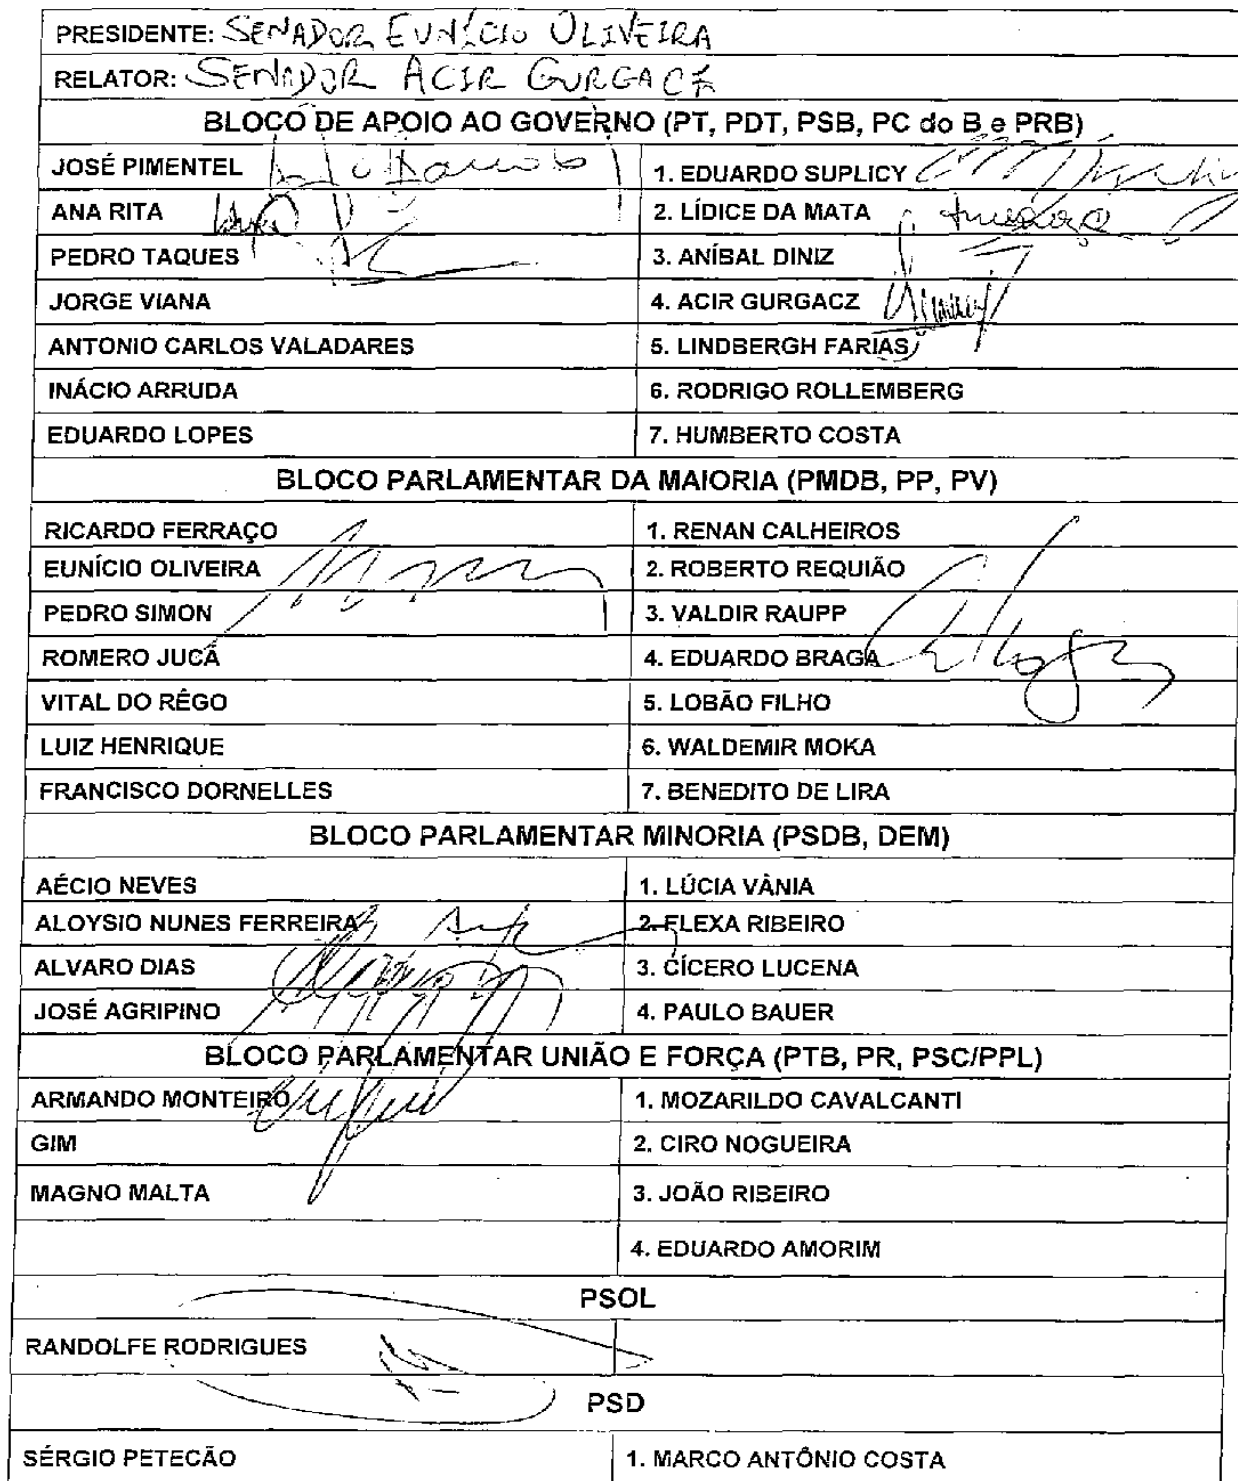 PRESIDENTE: SENADOR EUNÍCIO OLIVEIRA
RELATOR: SENADOR ACIR GURGACZ
BLOCO DE APOIO AO GOVERNO (PT, PDT, PSB, PC do B e PRB)
JOSÉ PIMENTEL 1. EDUARDO SUPLICY
ANA RITA 2. LÍDICE DA MATA
PEDRO TAQUES 3. ANÍBAL DINIZ
JORGE VIANA 4. ACIR GURGACZ
ANTONIO CARLOS VALADARES 5. LINDBERGH FARIAS
INÁCIO ARRUDA 6. RODRIGO ROLLEMBERG
EDUARDO LOPES 7. HUMBERTO COSTA
BLOCO PARLAMENTAR DA MAIORIA (PMDB, PP, PV)
RICARDO FERRAÇO 1. RENAN CALHEIROS
EUNÍCIO OLIVEIRA 2. ROBERTO REQUIÃO
PEDRO SIMON 3. VALDIR RAUPP
ROMERO JUCÁ 4. EDUARDO BRAGA
VITAL DO RÊGO 5. LOBÃO FILHO
LUIZ HENRIQUE 6. WALDEMIR MOKA
FRANCISCO DORNELLES 7. BENEDITO DE LIRA
BLOCO PARLAMENTAR MINORIA (PSDB, DEM)
AÉCIO NEVES 1. LÚCIA VÂNIA
ALOYSIO NUNES FERREIRA 2. FLEXA RIBEIRO
ALVARO DIAS 3. CÍCERO LUCENA
JOSÉ AGRIPINO 4. PAULO BAUER
BLOCO PARLAMENTAR UNIÃO E FORÇA (PTB, PR, PSC/PPL)
ARMANDO MONTEIRO 1. MOZARILDO CAVALCANTI
GIM 2. CIRO NOGUEIRA
MAGNO MALTA 3. JOÃO RIBEIRO
4. EDUARDO AMORIM
PSOL
RANDOLFE RODRIGUES
PSD
SÉRGIO PETECÃO 1. MARCO ANTÔNIO COSTA